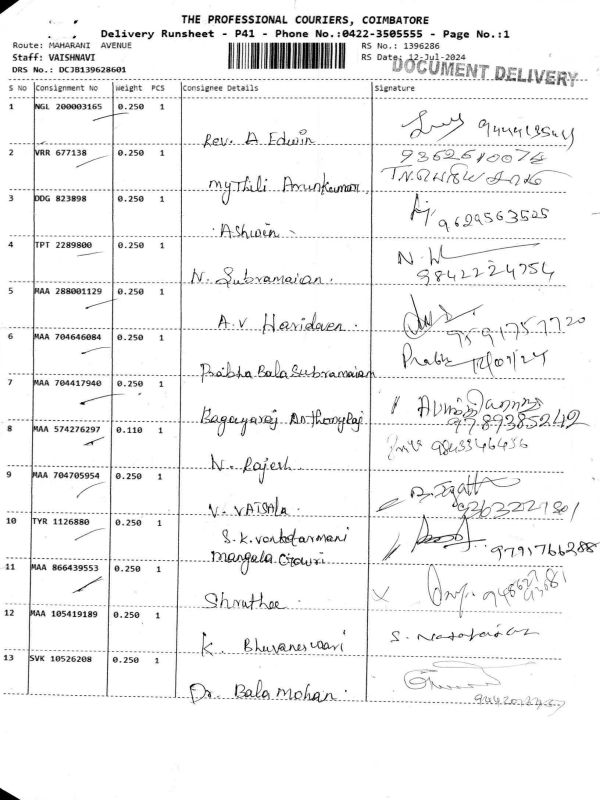 THE PROFESSIONAL COURIERS, COIMBATORE
Delivery Runsheet - P41 - Phone No.:0422-3505555 - Page No.:1
Route: MAHARANI AVENUE
RS No.: 1396286
Staff: VAISHNAVI
RS Date: 12-Jul-2024
DRS No.: DCJB139628601
DOCUMENT DELIVERY
S No Consignment No Weight PCS Consignee Details Signature
1 NGL 200003165 0.250 1
Rev. A Edwin
2 VRR 677138 0.250 1 9362610074
Mythili Arunkumar
3 DDG 823898 0.250 1
Ashwin 9629563525
4 TPT 2289800 0.250 1
N. Subramaian 9842224754
5 MAA 288001129 0.250 1
A.V Haridaven 9591757720
6 MAA 704646084 0.250 1 Prabh 12/07/24
Prabha Bala Subramaian
7 MAA 704417940 0.250 1
Bagayaraj Anthonyraj 9789385242
8 MAA 574276297 0.110 1 9843346436
N. Rajesh
9 MAA 704705954 0.250 1
V. VATSALA
10 TYR 1126880 0.250 1 S.K. Venkataramani
Mangala Gowri 9791766288
11 MAA 866439553 0.250 1
Shruthee
12 MAA 105419189 0.250 1
K. Bhuvaneswari
13 SVK 10526208 0.250 1
Dr. Bala Mohan